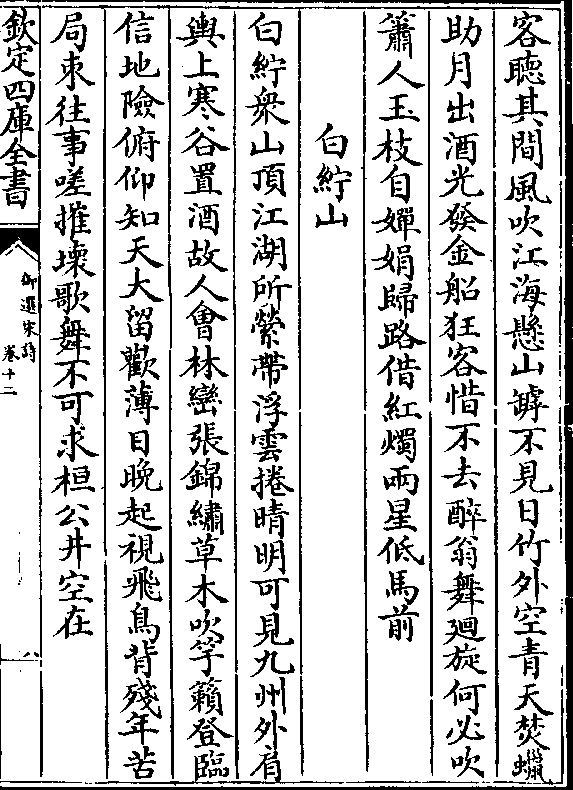 客聽其間風吹江海懸山罅不見日竹外空青天焚蠟
助月出酒光發金船狂客惜不去醉翁舞廻旋何必吹
簫人玉枝自嬋娟歸路借紅燭兩星低馬前
白紵山
白紵衆山頂江湖所縈帶浮雲捲晴明可見九州外肩
輿上寒谷置酒故人會林巒張錦繡草木吹竽籟登臨
信地險俯仰知天大留歡薄日晚起視飛鳥背殘年苦
局束往事嗟摧壞歌舞不可求桓公井空在
欽定四庫全書
御選宋詩
卷十二
八